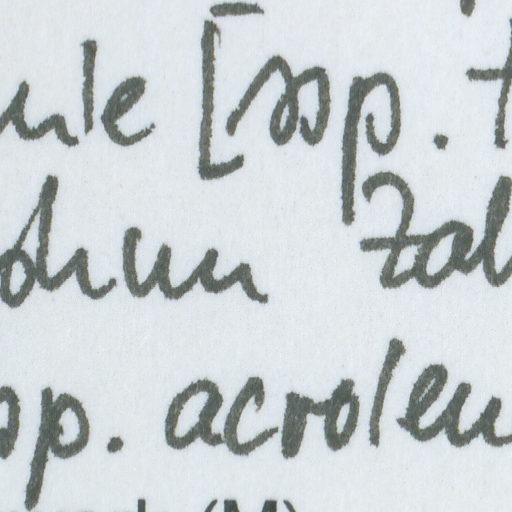 ule [ssp. t
dium Zal
sp. acroleu
(M)